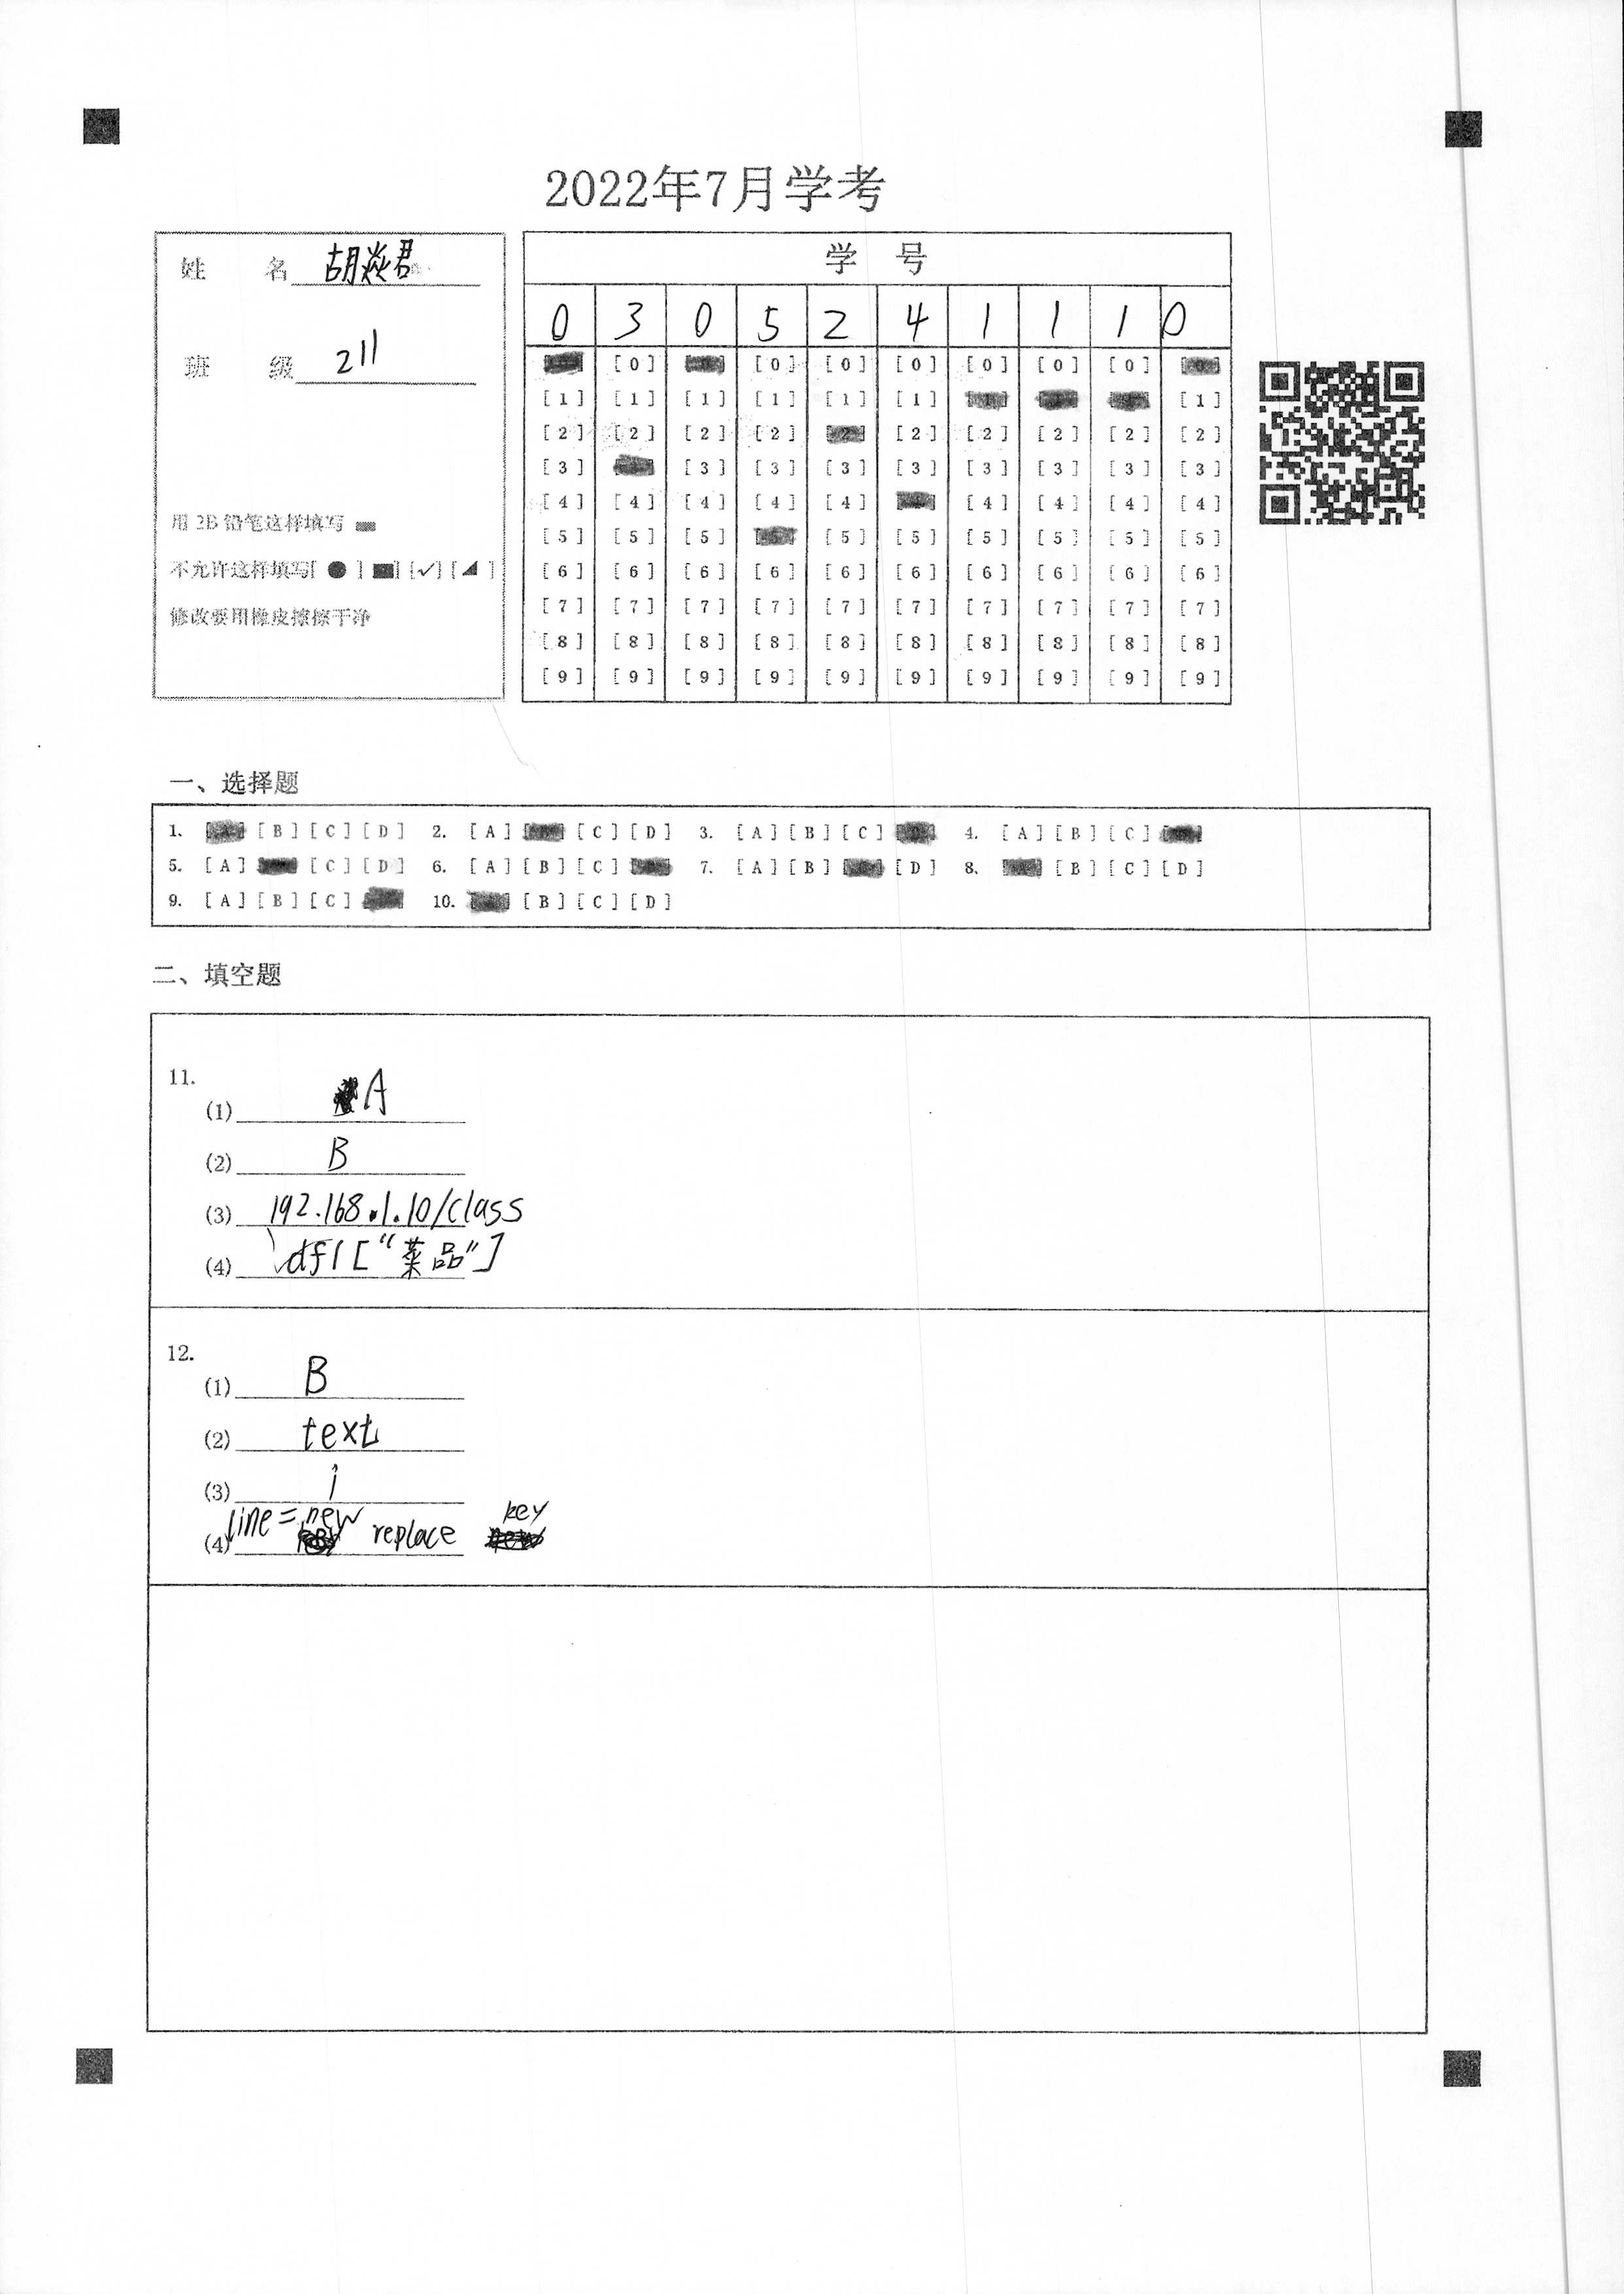 2022年7月学考
姓 名 胡焱君
班 级 211
用 2B 铅笔这样填写
不允许这样填写[ ● ] [■] [✓] [◢ ]
修改要用橡皮擦擦干净
学 号
0 3 0 5 2 4 1 1 1 0
[0] [0] [0] [0] [0] [0] [0]
[1] [1] [1] [1] [1] [1] [1] [1] [1] [1]
[2] [2] [2] [2] [2] [2] [2] [2] [2] [2]
[3] [3] [3] [3] [3] [3] [3] [3] [3]
[4] [4] [4] [4] [4] [4] [4] [4] [4]
[5] [5] [5] [5] [5] [5] [5] [5] [5] [5]
[6] [6] [6] [6] [6] [6] [6] [6] [6] [6]
[7] [7] [7] [7] [7] [7] [7] [7] [7] [7]
[8] [8] [8] [8] [8] [8] [8] [8] [8] [8]
[9] [9] [9] [9] [9] [9] [9] [9] [9] [9]
一、选择题
1. [A] [B] [C] [D] 2. [A] [B] [C] [D] 3. [A] [B] [C] [D] 4. [A] [B] [C]
5. [A] [C] [D] 6. [A] [B] [C] 7. [A] [B] [D] 8. [B] [C] [D]
9. [A] [B] [C] 10. [A] [B] [C] [D]
二、填空题
11.
(1) A
(2) B
(3) 192.168.1.10/class
(4) df1["菜品"]
12.
(1) B
(2) text
(3) i
(4) line = new replace key